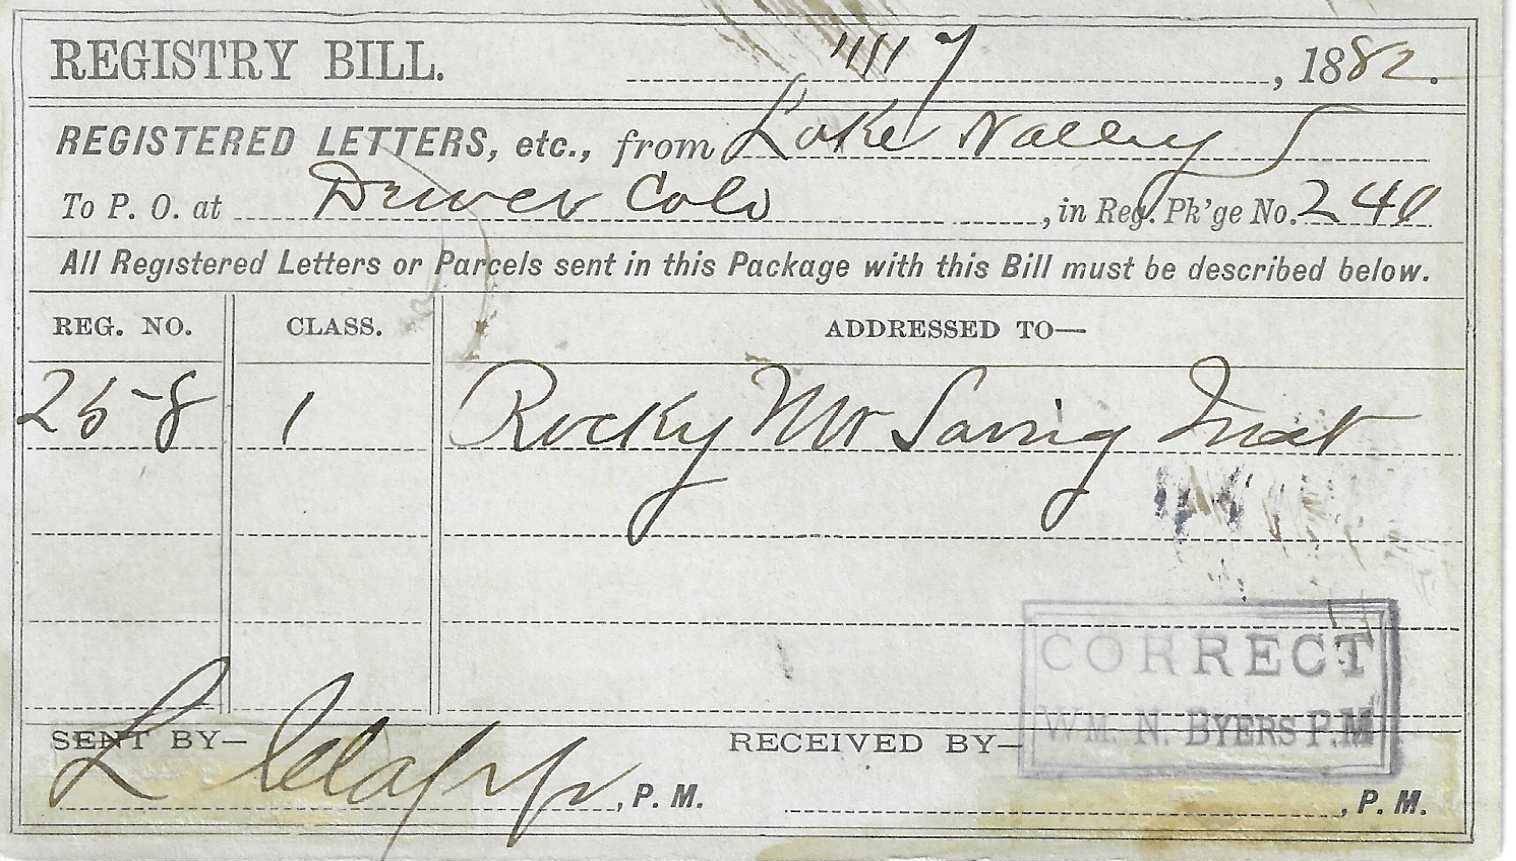 REGISTRY BILL. 7, 1882.
REGISTERED LETTERS, etc., from Lake Valley
To P. O. at Denver Colo, in Reg. Pk'ge No. 240
All Registered Letters or Parcels sent in this Package with this Bill must be described below.
REG. NO. CLASS. ADDRESSED TO—
258 1 Rocky Mt Saving Inst
CORRECT
WM. N. BYERS P.M
SENT BY— RECEIVED BY—
L Clapp, P. M. , P. M.